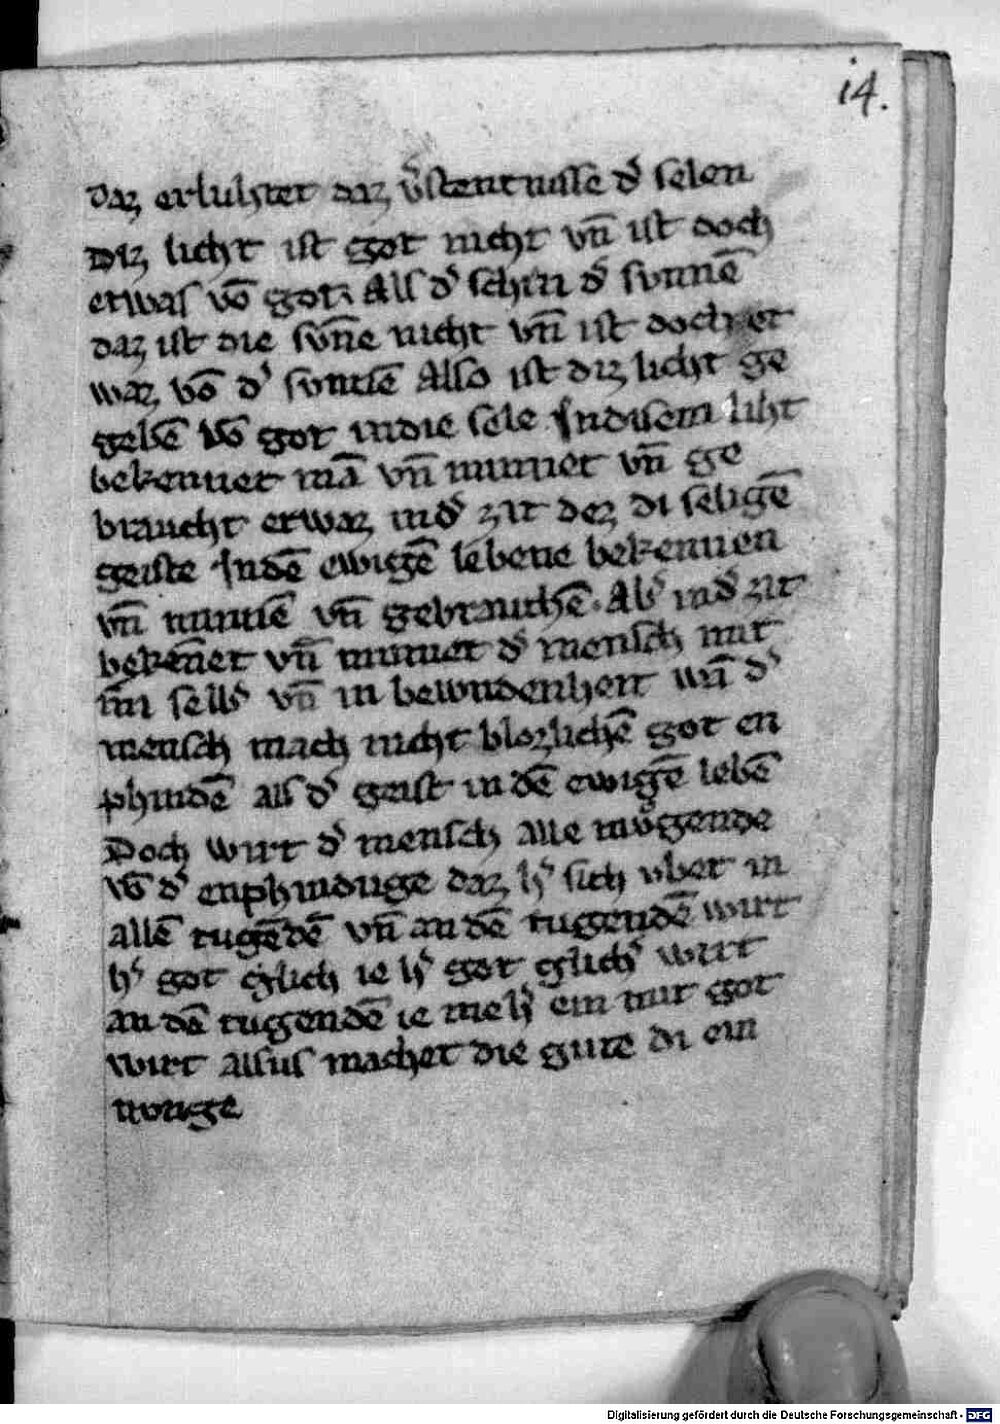 i4.
daz erluhtet daz v̾stentnisse d̾ selen
Diz licht ist got nicht vn̄ ist doch
etwas vō got. Als d̾ schin d̾ sunnē
daz ist die sūne nicht vn̄ ist doch et
waz vō d̾ sunnē Also ist diz licht ge
gebē vō got indie sele Indisem liht
bekennet mā vn̄ minnet vn̄ ge
braucht etwaz ind̾ zit dez di seligē
geiste Indē ewigē lebene bekennen
vn̄ minnē vn̄ gebrauchē. Ab̾ ind̾ zit
bekēnet vn̄ minnet d̾ mensch mit
im selb̾ vn̄ in bewndenheit wā d̾
mensch mach nicht blozlichē got en
phindē als d̾ geist in dē ewigē lebē
Doch wirt d̾ mensch alle mőgende
vō d̾ enphindũge daz h̾ sich vbet in
allē tugēdē vn̄ an dē tugendē wirt
h̾ got glich ie h̾ got glich̾ wirt
an dē tugendē ie me h̾ ein mit got
wirt alsus machet die gute di ein
nvnge
Digitalisierung gefördert durch die Deutsche Forschungsgemeinschaft - DFG